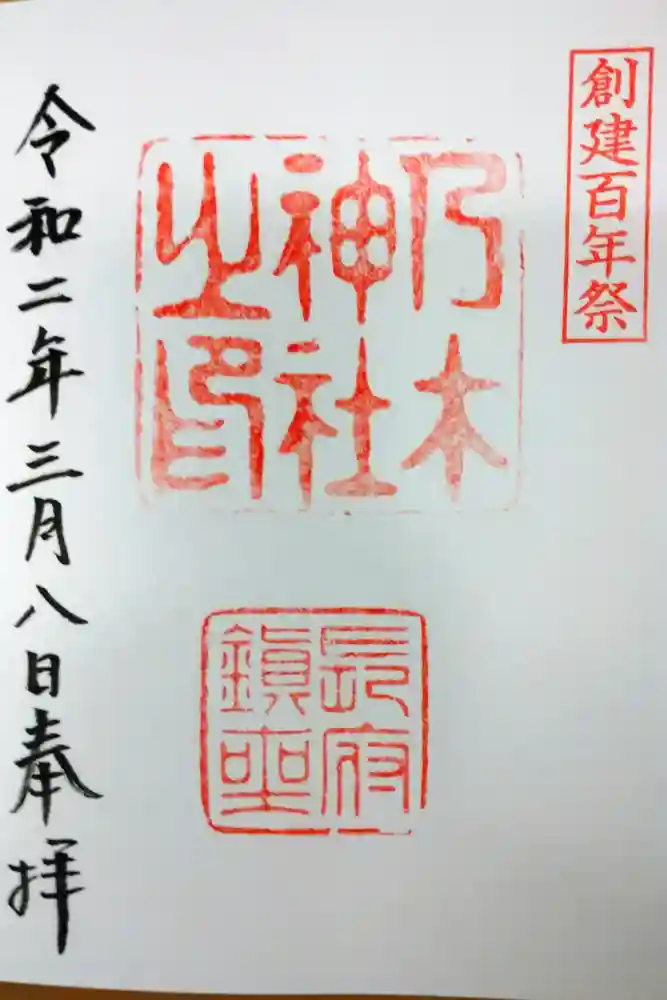 創建百年祭
乃木
神社
之印
長府
鎮坐
令和二年三月八日奉拝